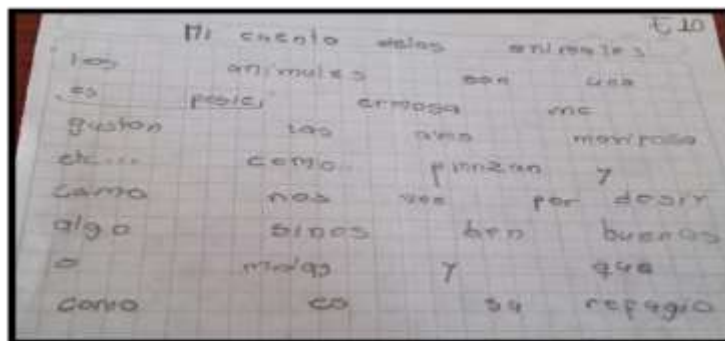 E 10
Mi cuento delos animales
los animales son una
es pesiei ermosa me
gustan las aves mariposa
etc... como.. pienzan y
como nos ven por desir
algo sinos ben buenos
o malos y que
como es su refugio